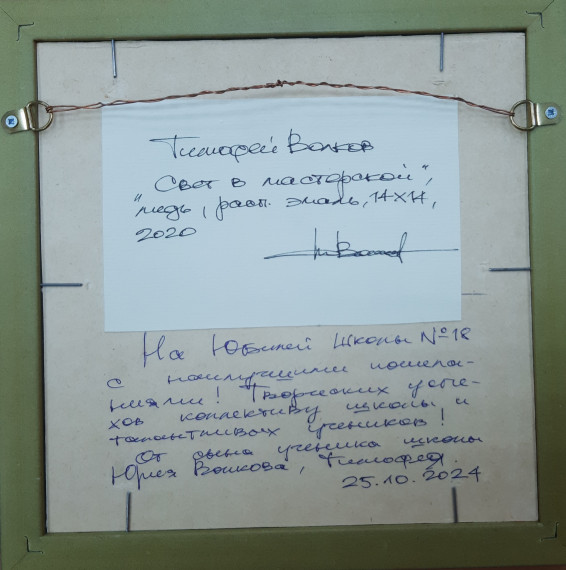 Тимофей Волков
"Свет в мастерской",
медь, расп. эмаль, 14х14,
2020
На Юбилей школы №18
с наилучшими пожела-
ниями! Творческих успе-
хов коллективу школы и
талантливых учеников!
От сына ученика школы
Юрия Волкова, Тимофея.
25.10.2024